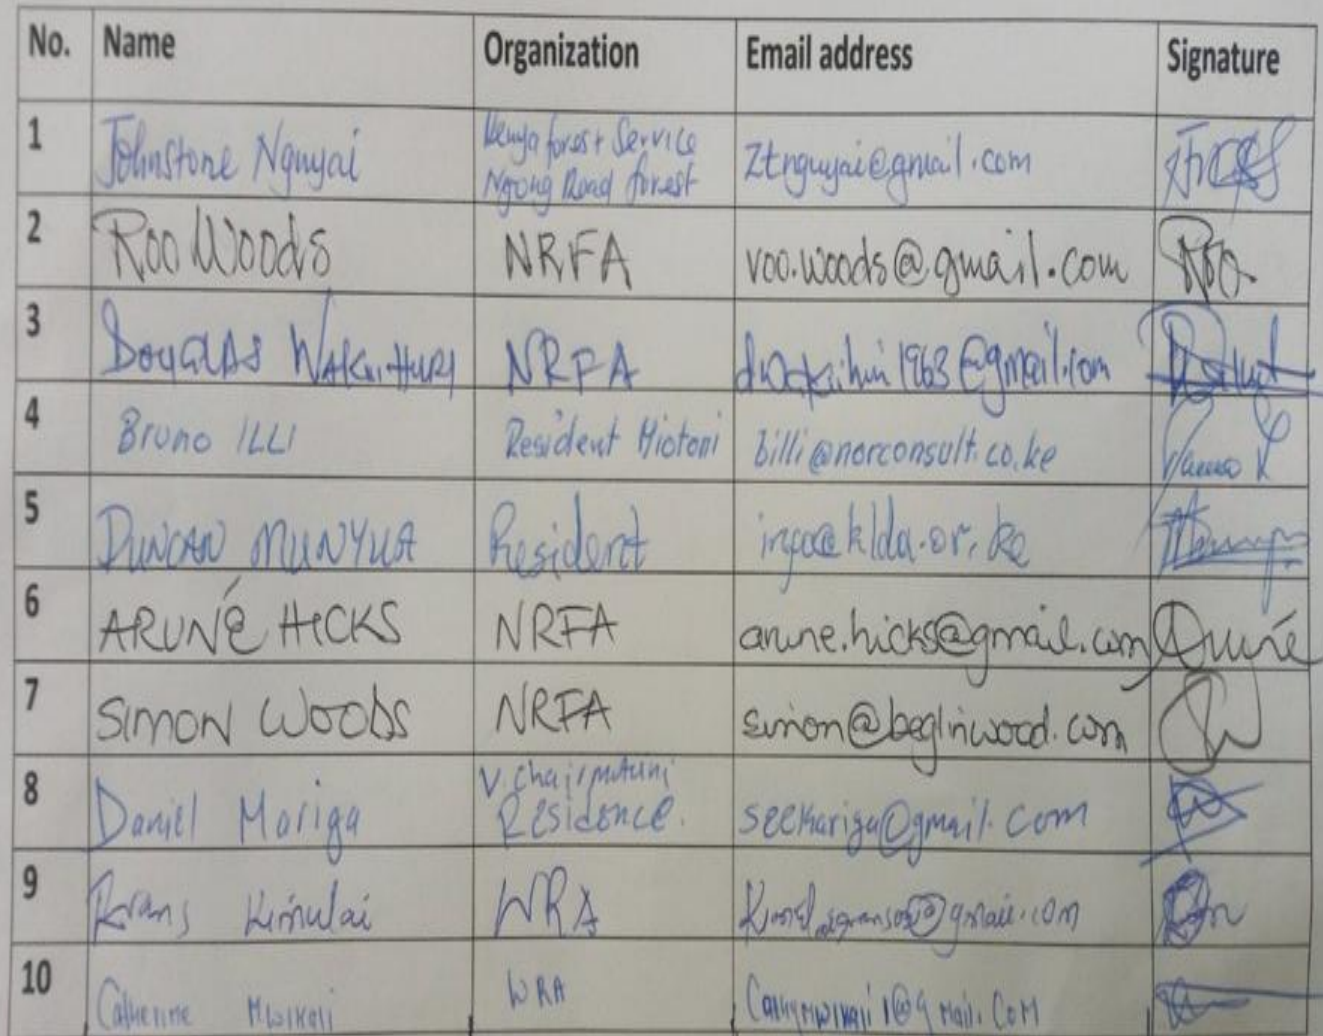 No. Name Organization Email address Signature
1 Johnstone Nguyai Kenya forest Service Ztnguyai@gmail.com
Ngong Road forest
2 Roo Woods NRFA roo.woods@gmail.com Roo.
3 Douglas Wakiihuri NRFA
4 Bruno ILLI Resident Miotoni billi@norconsult.co.ke
5 DUNCAN MUNYUA Resident info@klda.or.ke
6 ARUNÉ HICKS NRFA arune.hicks@gmail.com Aruné
7 SIMON WOODS NRFA simon@beglinwood.com
8 Daniel Mariga V. Chair
Residence. seekariga@gmail.com
9 Kimulai WRA
10 Catherine Mwikali WRA Cathymwikali1@gmail.com